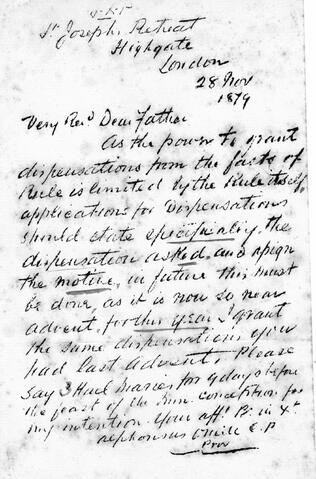 J.X.P.
St Joseph's Retreat
Highgate
London
28 Nov
1879
Very Revd Dear Father
As the power to grant
dispensations from the fasts of
Rule is limited by the Rule itself,
applications for Dispensations
should state specifically, the
dispensation asked, and assign
the motive, in future this must
be done, as it is now so near
advent, for this year I grant
the same dispensations you
had last advent. Please
say 3 Hail Maries for 9 days before
the feast of the Imm. Conception for
my intention. Your afft B. in Xt
Alphonsus O'Neill C.P.
Prov